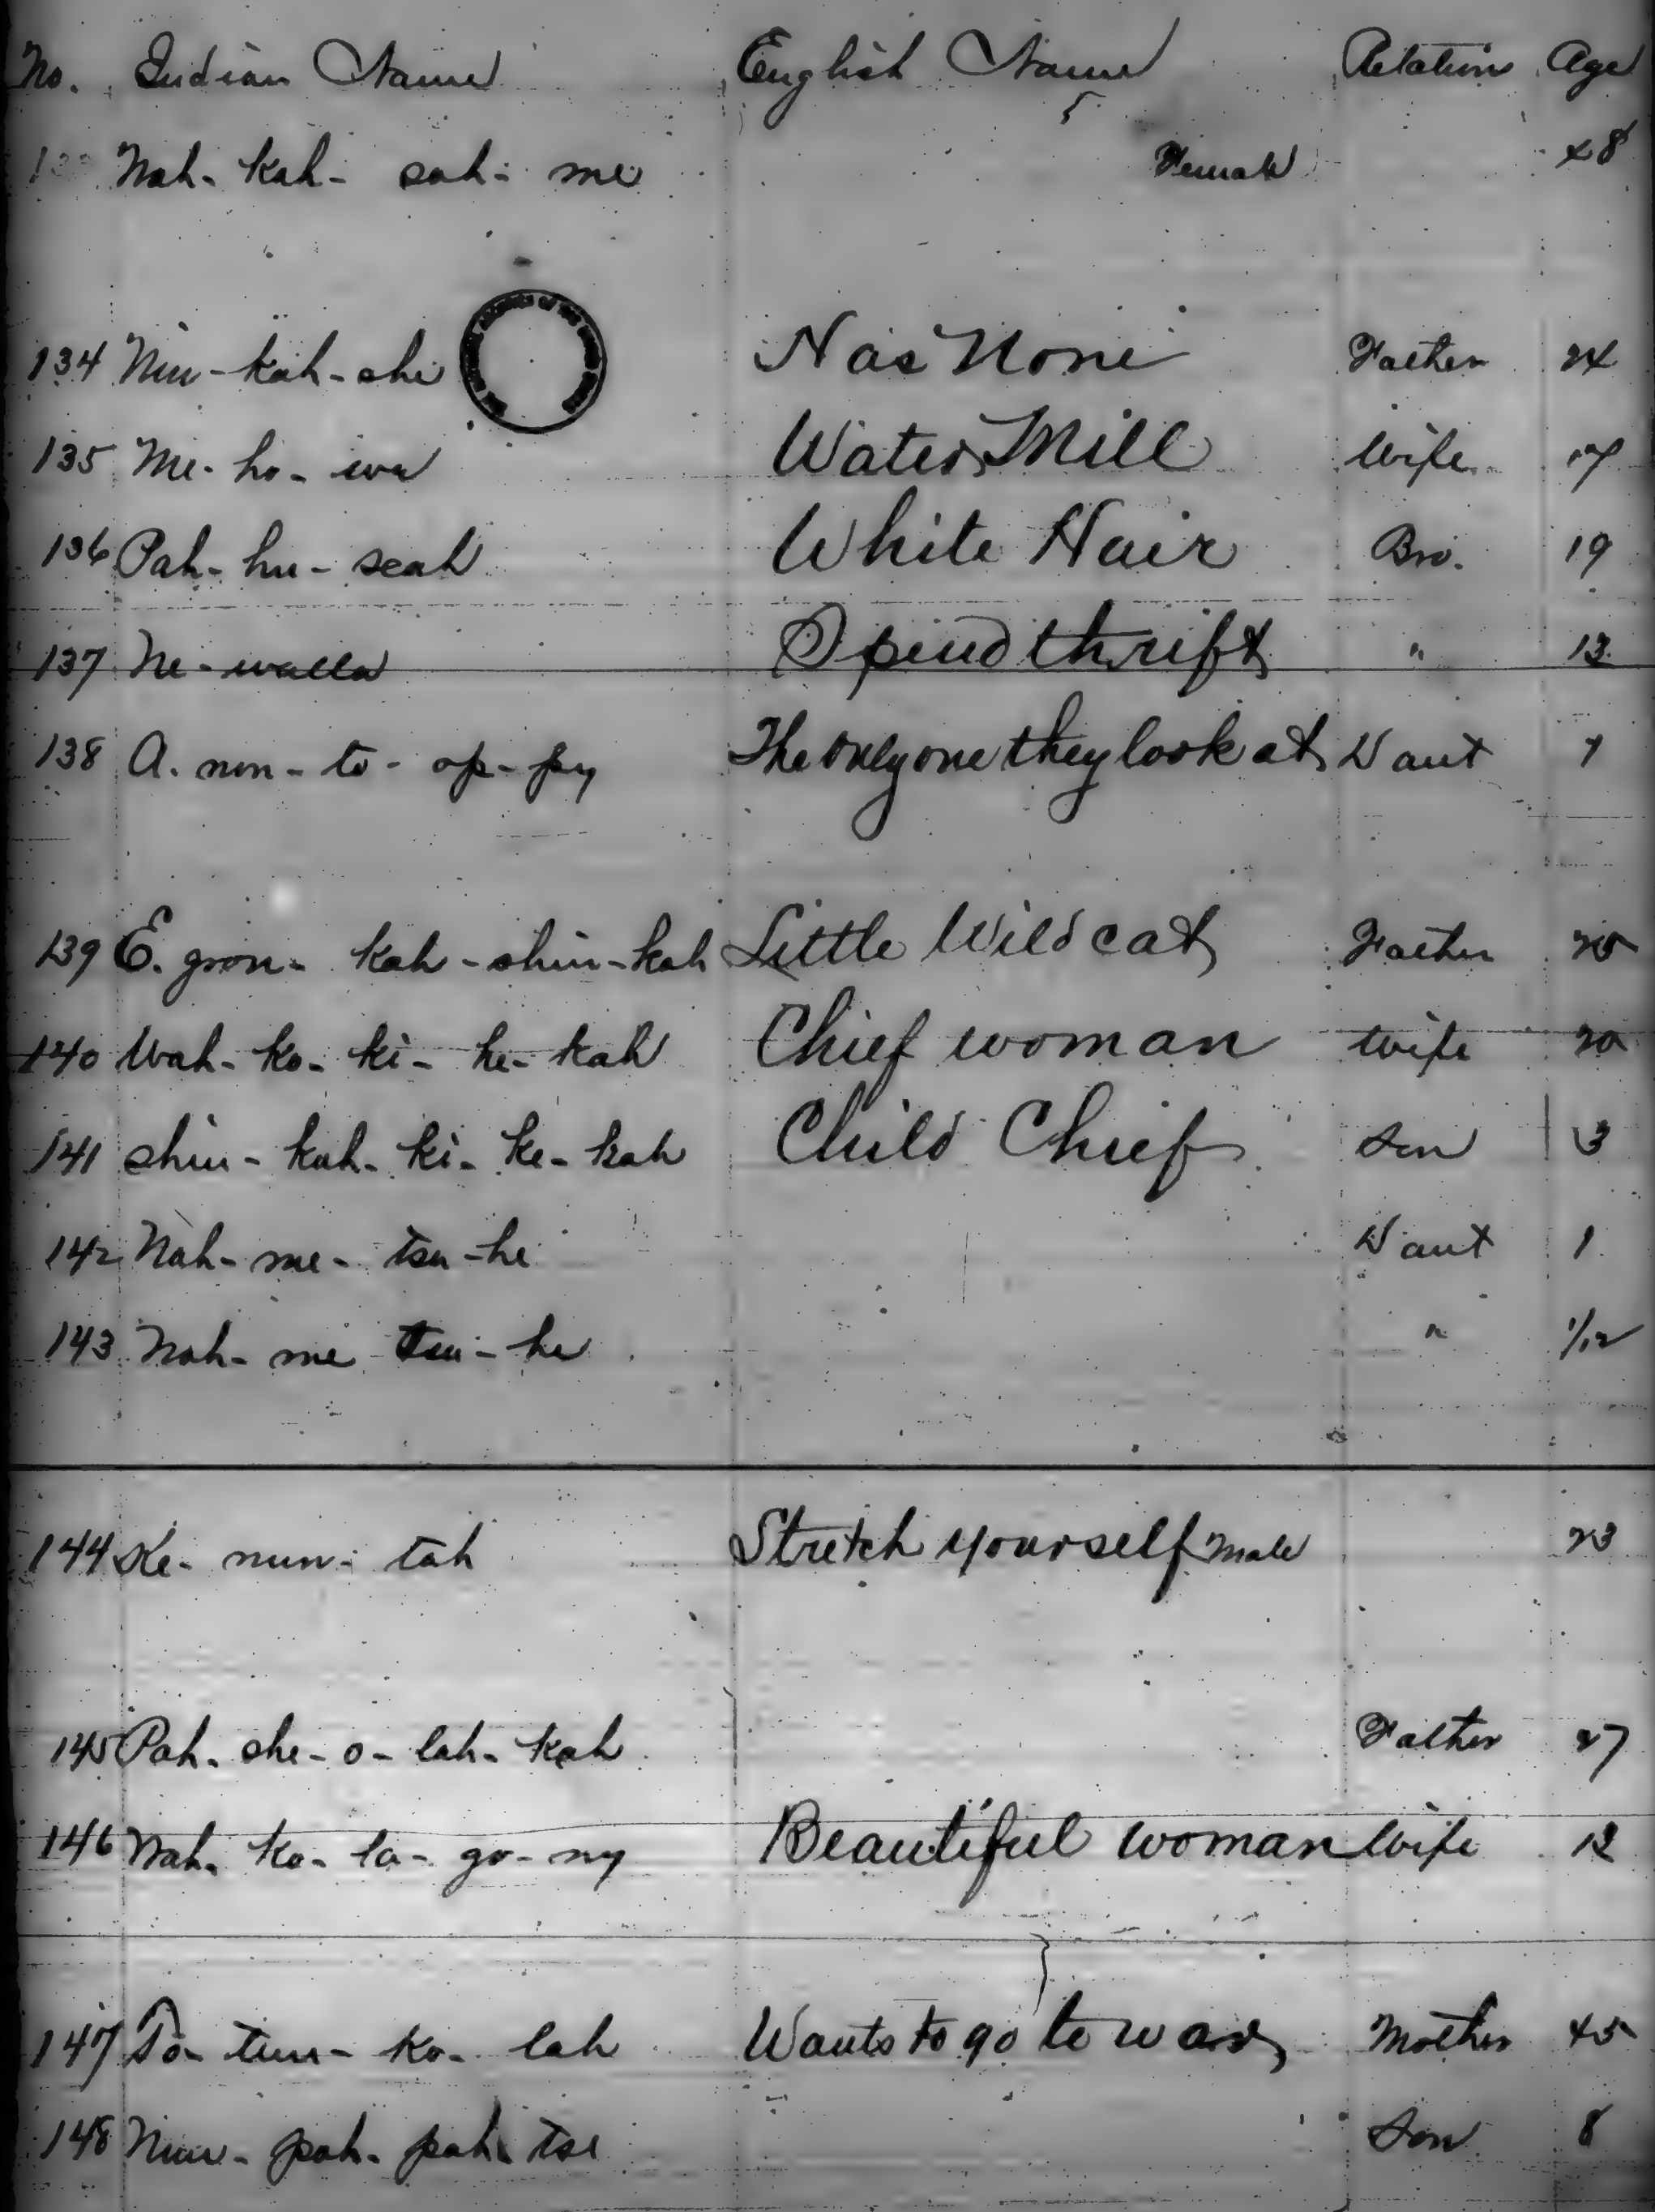 No. Indian Name English Name Relation Age
133 Nah-kah-sah-me Female 48
134 Nin-kah-she Has None Father 24
135 Me-ho-wa Water Mill Wife 17
136 Pah-hu-scah White Hair Bro. 19
137 Ne-walla Spendthrift " 13
138 A-non-to-op-py The only one they look at Daut 7
139 E-gron-kah-shin-kah Little Wild cat Father 25
140 Wah-ko-ki-he-kah Chief woman Wife 20
141 Shin-kah-ki-ke-kah Child Chief Son 3
142 Nah-me-tsa-he Daut 1
143 Nah-me tsa-he " 1/12
144 Ke-nun-tah Stretch yourself Male 23
145 Pah-she-o-lah-kah Father 27
146 Wah-ko-la-go-ny Beautiful woman Wife 18
147 To-tun-ko-lah Wants to go to war Mother 45
148 Nun-pah-pah tse Son 8